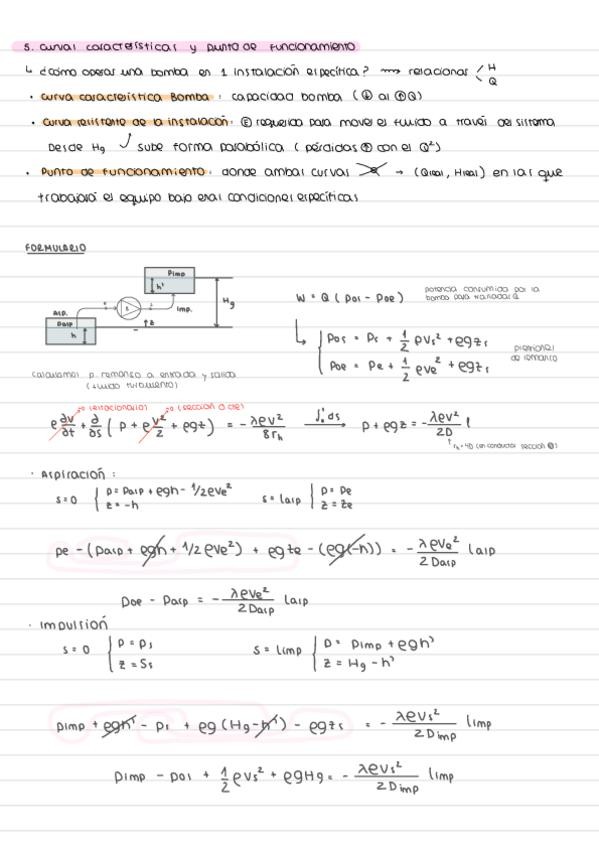 5. Curvas características y punto de funcionamiento
↳ ¿Cómo operar una bomba en 1 instalación específica? ⟿ relacionar < H Q
· Curva característica Bomba: capacidad bomba (↓ al ↑Q)
· Curva resistente de la instalación: Ⓔ requerida para mover el fluido a través del sistema
Desde Hg ↗ sube forma parabólica (pérdidas ↑ con el Q²)
· Punto de funcionamiento: donde ambas curvas → (Qreal, Hreal) en las que
trabajará el equipo bajo esas condiciones específicas
FORMULARIO
Pimp
h'
Asp.
Pasp
h
Imp.
Hg
↑z
W = Q (pos - poe)
potencia consumida por la
bomba para trasladar Q
pos = ps + 1/2 ρvs² + ρgzs
poe = pe + 1/2 ρve² + ρgzs
presiones
de remanso
calculamos p. remanso a entrada y salida
(fluido turbulento)
→0 (estacionario) →0 (sección α cte)
ρ ∂v/∂t + ∂/∂s (p + ρ v²/2 + ρgz) = - λρv²/8rh ⟶ p + ρgz = - λρv²/2D l
↑ rh=4D (en conductos sección O)
· Aspiración:
s=0 { p = pasp + ρgh - 1/2ρve² s = lasp { p = pe
z = -h z = ze
pe - (pasp + ρgh + 1/2 ρve²) + ρgze - (ρg(-h)) = - λρve²/2Dasp lasp
poe - pasp = - λρve²/2Dasp lasp
· Impulsión
s = 0 { p = ps s = limp { p = pimp + ρgh'
z = Ss z = Hg - h'
pimp + ρgh' - ps + ρg(Hg-h') - ρgzs = - λρvs²/2Dimp limp
pimp - pos + 1/2 ρvs² + ρgHg = - λρvs²/2Dimp limp